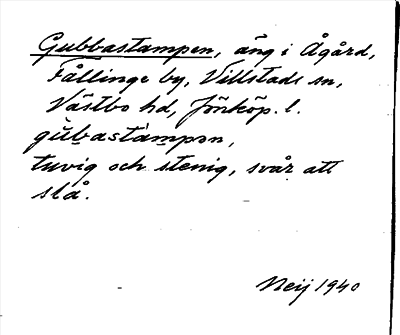 Gubbastampen, äng i Ågård,
Fållinge by, Villstads sn,
Västbo hd, Jönköp. l.
gùbastàmpən,
tuvig och stenig, svår att
slå.
Neij 1940